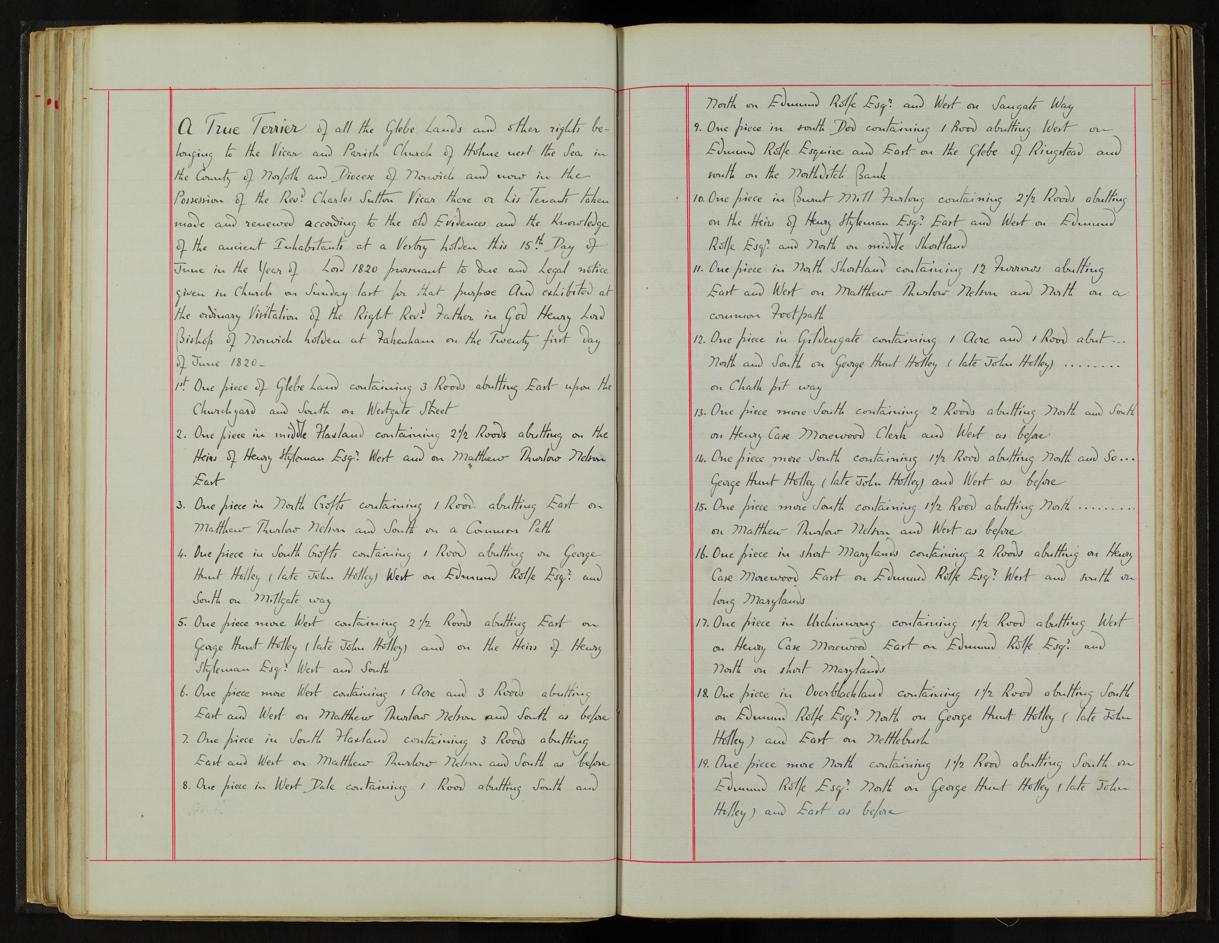 A True Terrier of all the Glebe Lands and other rights be-
longing to the Vicar and Parish Church of Holme next the Sea in
the County of Norfolk and Diocese of Norwich and now in the
Possession of the Revd. Charles Sutton Vicar there or his Tenants taken
made and renewed according to the old Evidences and the Knowledge
of the ancient Inhabitants at a Vestry holden this 15th Day of
June in the Year of Lord 1820 pursuant to due and Legal notice
given in Church on Sunday last for that purpose And exhibited at
the ordinary Visitation of the Right Revd. Father in God Henry Lord
Bishop of Norwich holden at Fakenham on the Twenty first day
of June 1820-
1st One piece of Glebe Land containing 3 Roods abutting East upon the
Churchyard and South on Westgate Street
2. One piece in middle Flaxland containing 2 1/2 Roods abutting on the
Heirs of Henry Styleman Esqr. West and on Matthew Thurlow Nelson
East
3. One piece in North Crofts containing 1 Rood abutting East on
Matthew Thurlow Nelson and South on a Common Path
4. One piece in South Crofts containing 1 Rood abutting on George
Hunt Holley (late John Holley) West on Edmund Rolfe Esqr. and
South on Millgate way
5. One piece more West containing 2 1/2 Roods abutting East on
George Hunt Holley (late John Holley) and on the Heirs of Henry
Styleman Esqr. West and South
6. One piece more West containing 1 Acre and 3 Roods abutting
East and West on Matthew Thurlow Nelson and South as before
7. One piece in South Flaxland containing 3 Roods abutting
East and West on Matthew Thurlow Nelson and South as before
8. One piece in West Dale containing 1 Rood abutting South and
North on Edmund Rolfe Esqr. and West on Sangate Way
9. One piece in south Dod containing 1 Rood abutting West on
Edmund Rolfe Esquire and East on the Glebe of Ringstead and
south on the Northditch Bank
10. One piece in Burnt Mill Furlong containing 2 1/2 Roods abutting
on the Heirs of Henry Styleman Esqr. East and West on Edmund
Rolfe Esqr. and North on middle Shortland
11. One piece in North Shortland containing 12 Furrows abutting
East and West on Matthew Thurlow Nelson and North on a
common Footpath
12. One piece in Gildengate containing 1 Acre and 1 Rood abut...
North and South on George Hunt Holley (late John Holley) ........
on Chalk pit way
13. One piece more South containing 2 Roods abutting North and South
on Henry Case Morewood Clerk and West as before
14. One piece more South containing 1 1/2 Rood abutting North and So...
George Hunt Holley (late John Holley) and West as before
15. One piece more South containing 1 1/2 Rood abutting North .........
on Matthew Thurlow Nelson and West as before
16. One piece in short Marylands containing 2 Roods abutting on Henry
Case Morewood East on Edmund Rolfe Esqr. West and south on
long Marylands
17. One piece in containing 1 1/2 Rood abutting West
on Henry Case Morewood East on Edmund Rolfe Esqr. and
North on short Marylands
18. One piece in Overblackland containing 1 1/2 Rood abutting South
on Edmund Rolfe Esqr. North on George Hunt Holley (late John
Holley) and East on Nettlebush
19. One piece more North containing 1 1/2 Rood abutting South on
Edmund Rolfe Esqr. North on George Hunt Holley (late John
Holley) and East as before